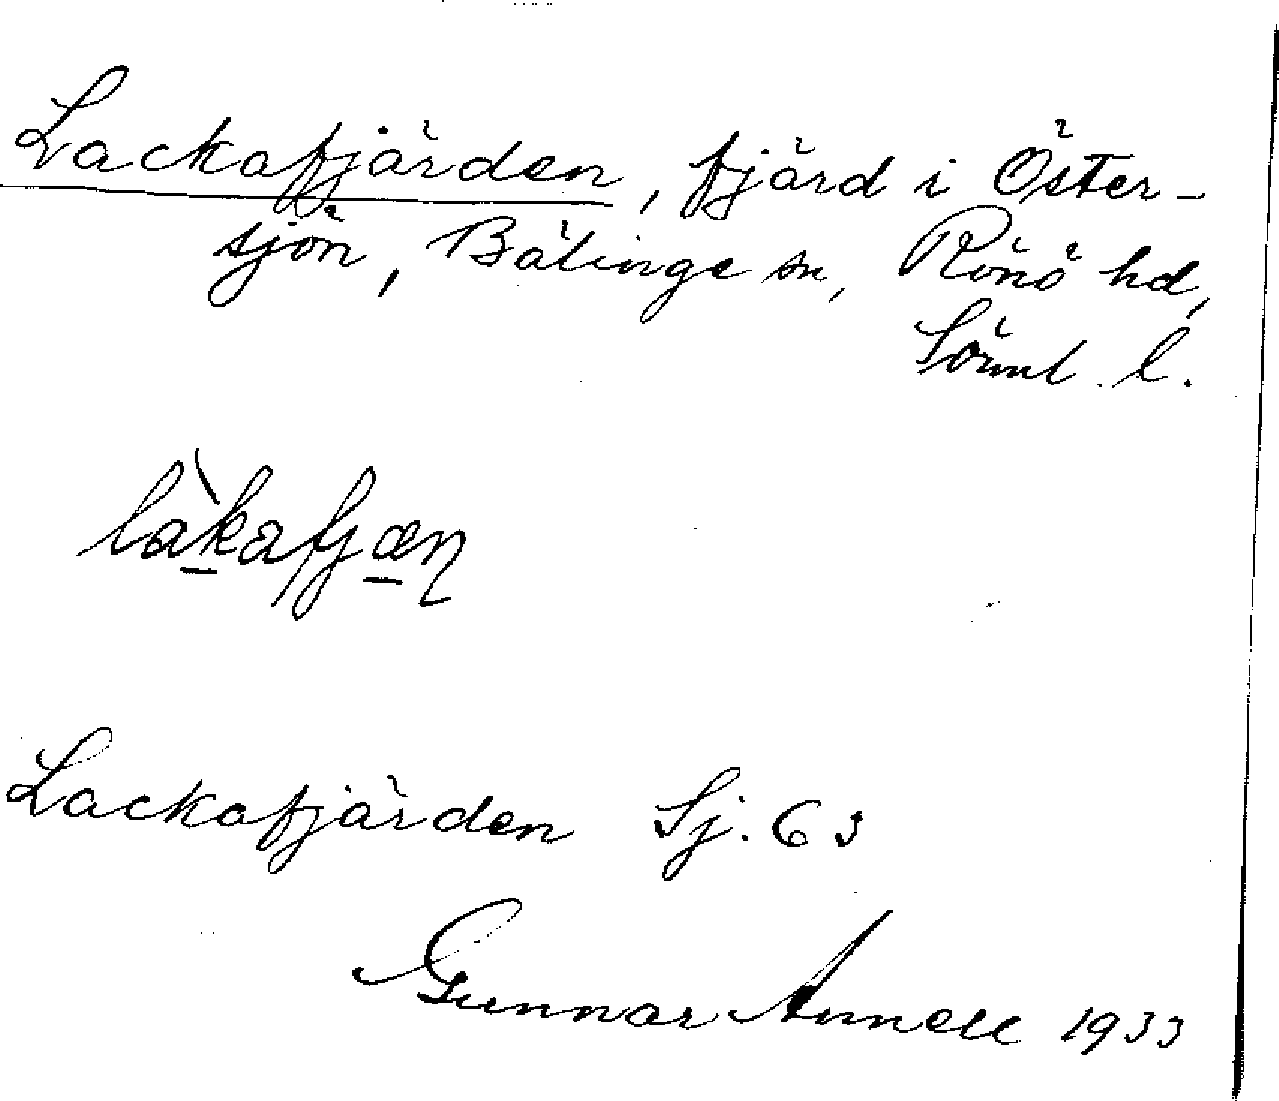 Lackafjärden, fjärd i Öster-
sjön, Bälinge sn, Rönö hd,
Sörml. l.
làkafjæɳ
Lackafjärden Sj. 63
Gunnar Annell 1933